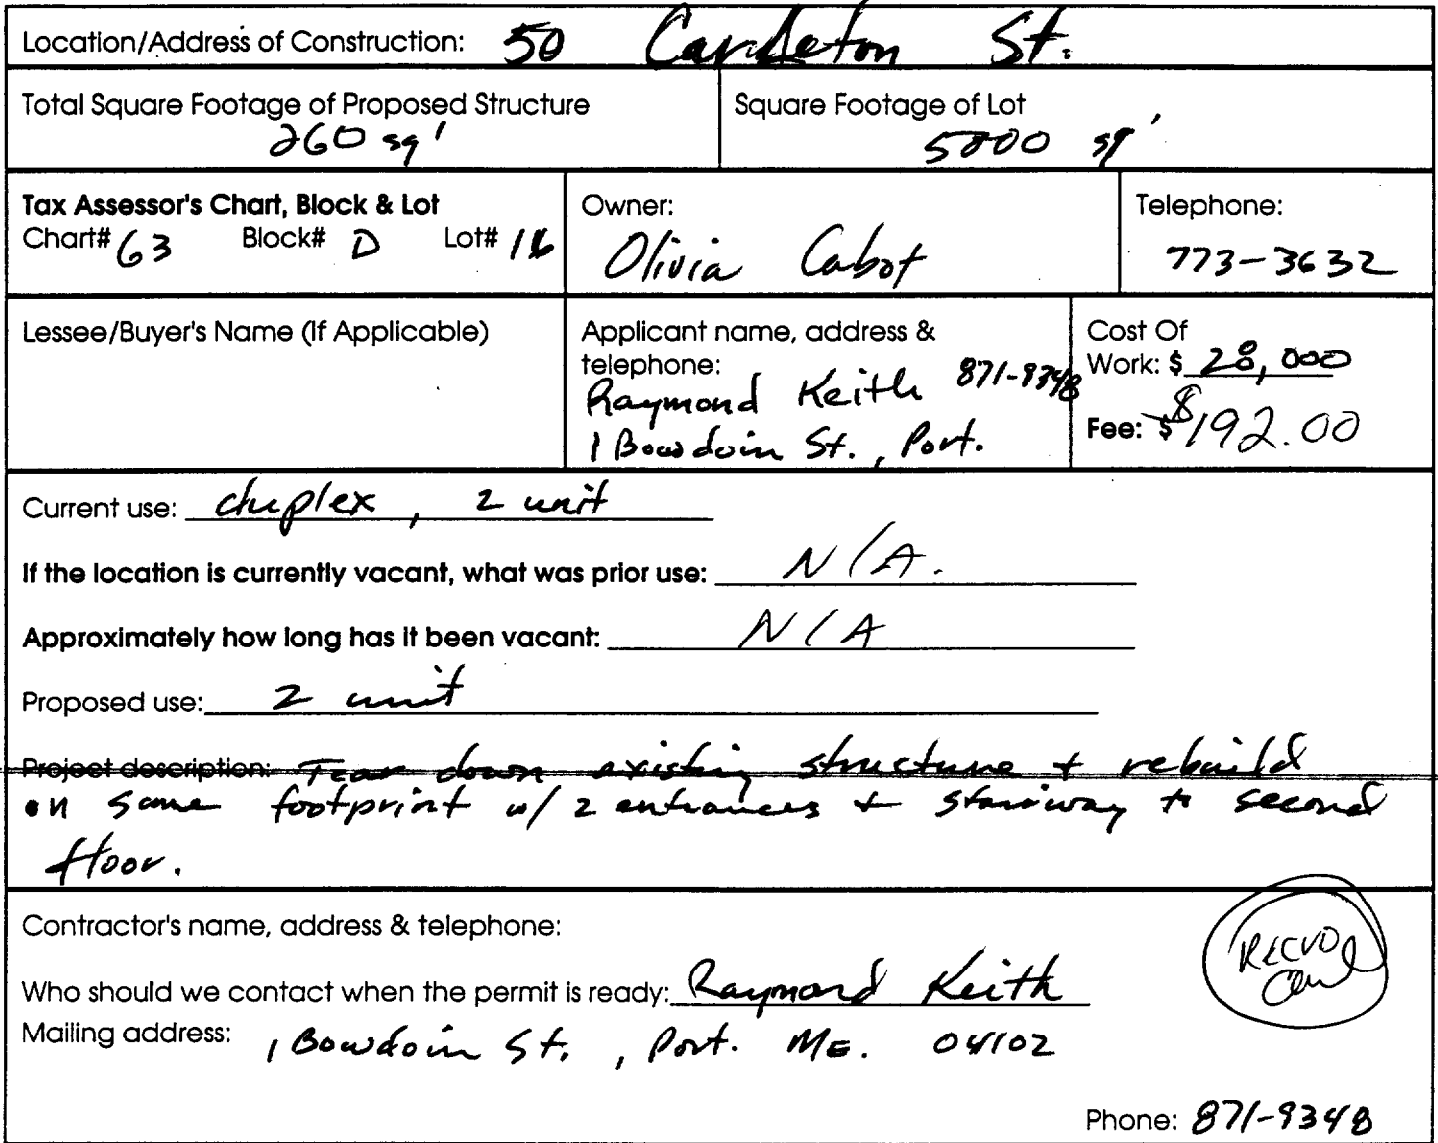 Location/Address of Construction: 50 Carleton St.
Total Square Footage of Proposed Structure
260 sq'
Square Footage of Lot
5000 sq'
Tax Assessor's Chart, Block & Lot
Chart# 63 Block# D Lot# 16
Owner:
Olivia Cabot
Telephone:
773-3632
Lessee/Buyer's Name (If Applicable)
Applicant name, address &
telephone:
Raymond Keith 871-9348
1 Bowdoin St., Port.
Cost Of
Work: $ 28,000
Fee: $ 192.00
Current use: duplex, 2 unit
If the location is currently vacant, what was prior use: N/A.
Approximately how long has it been vacant: N/A
Proposed use: 2 unit
Project description: Tear down existing structure + rebuild
on same footprint w/ 2 entrances + stairway to second
floor.
Contractor's name, address & telephone:
RECVD
Who should we contact when the permit is ready: Raymond Keith
Mailing address: 1 Bowdoin St., Port. ME. 04102
Phone: 871-9348